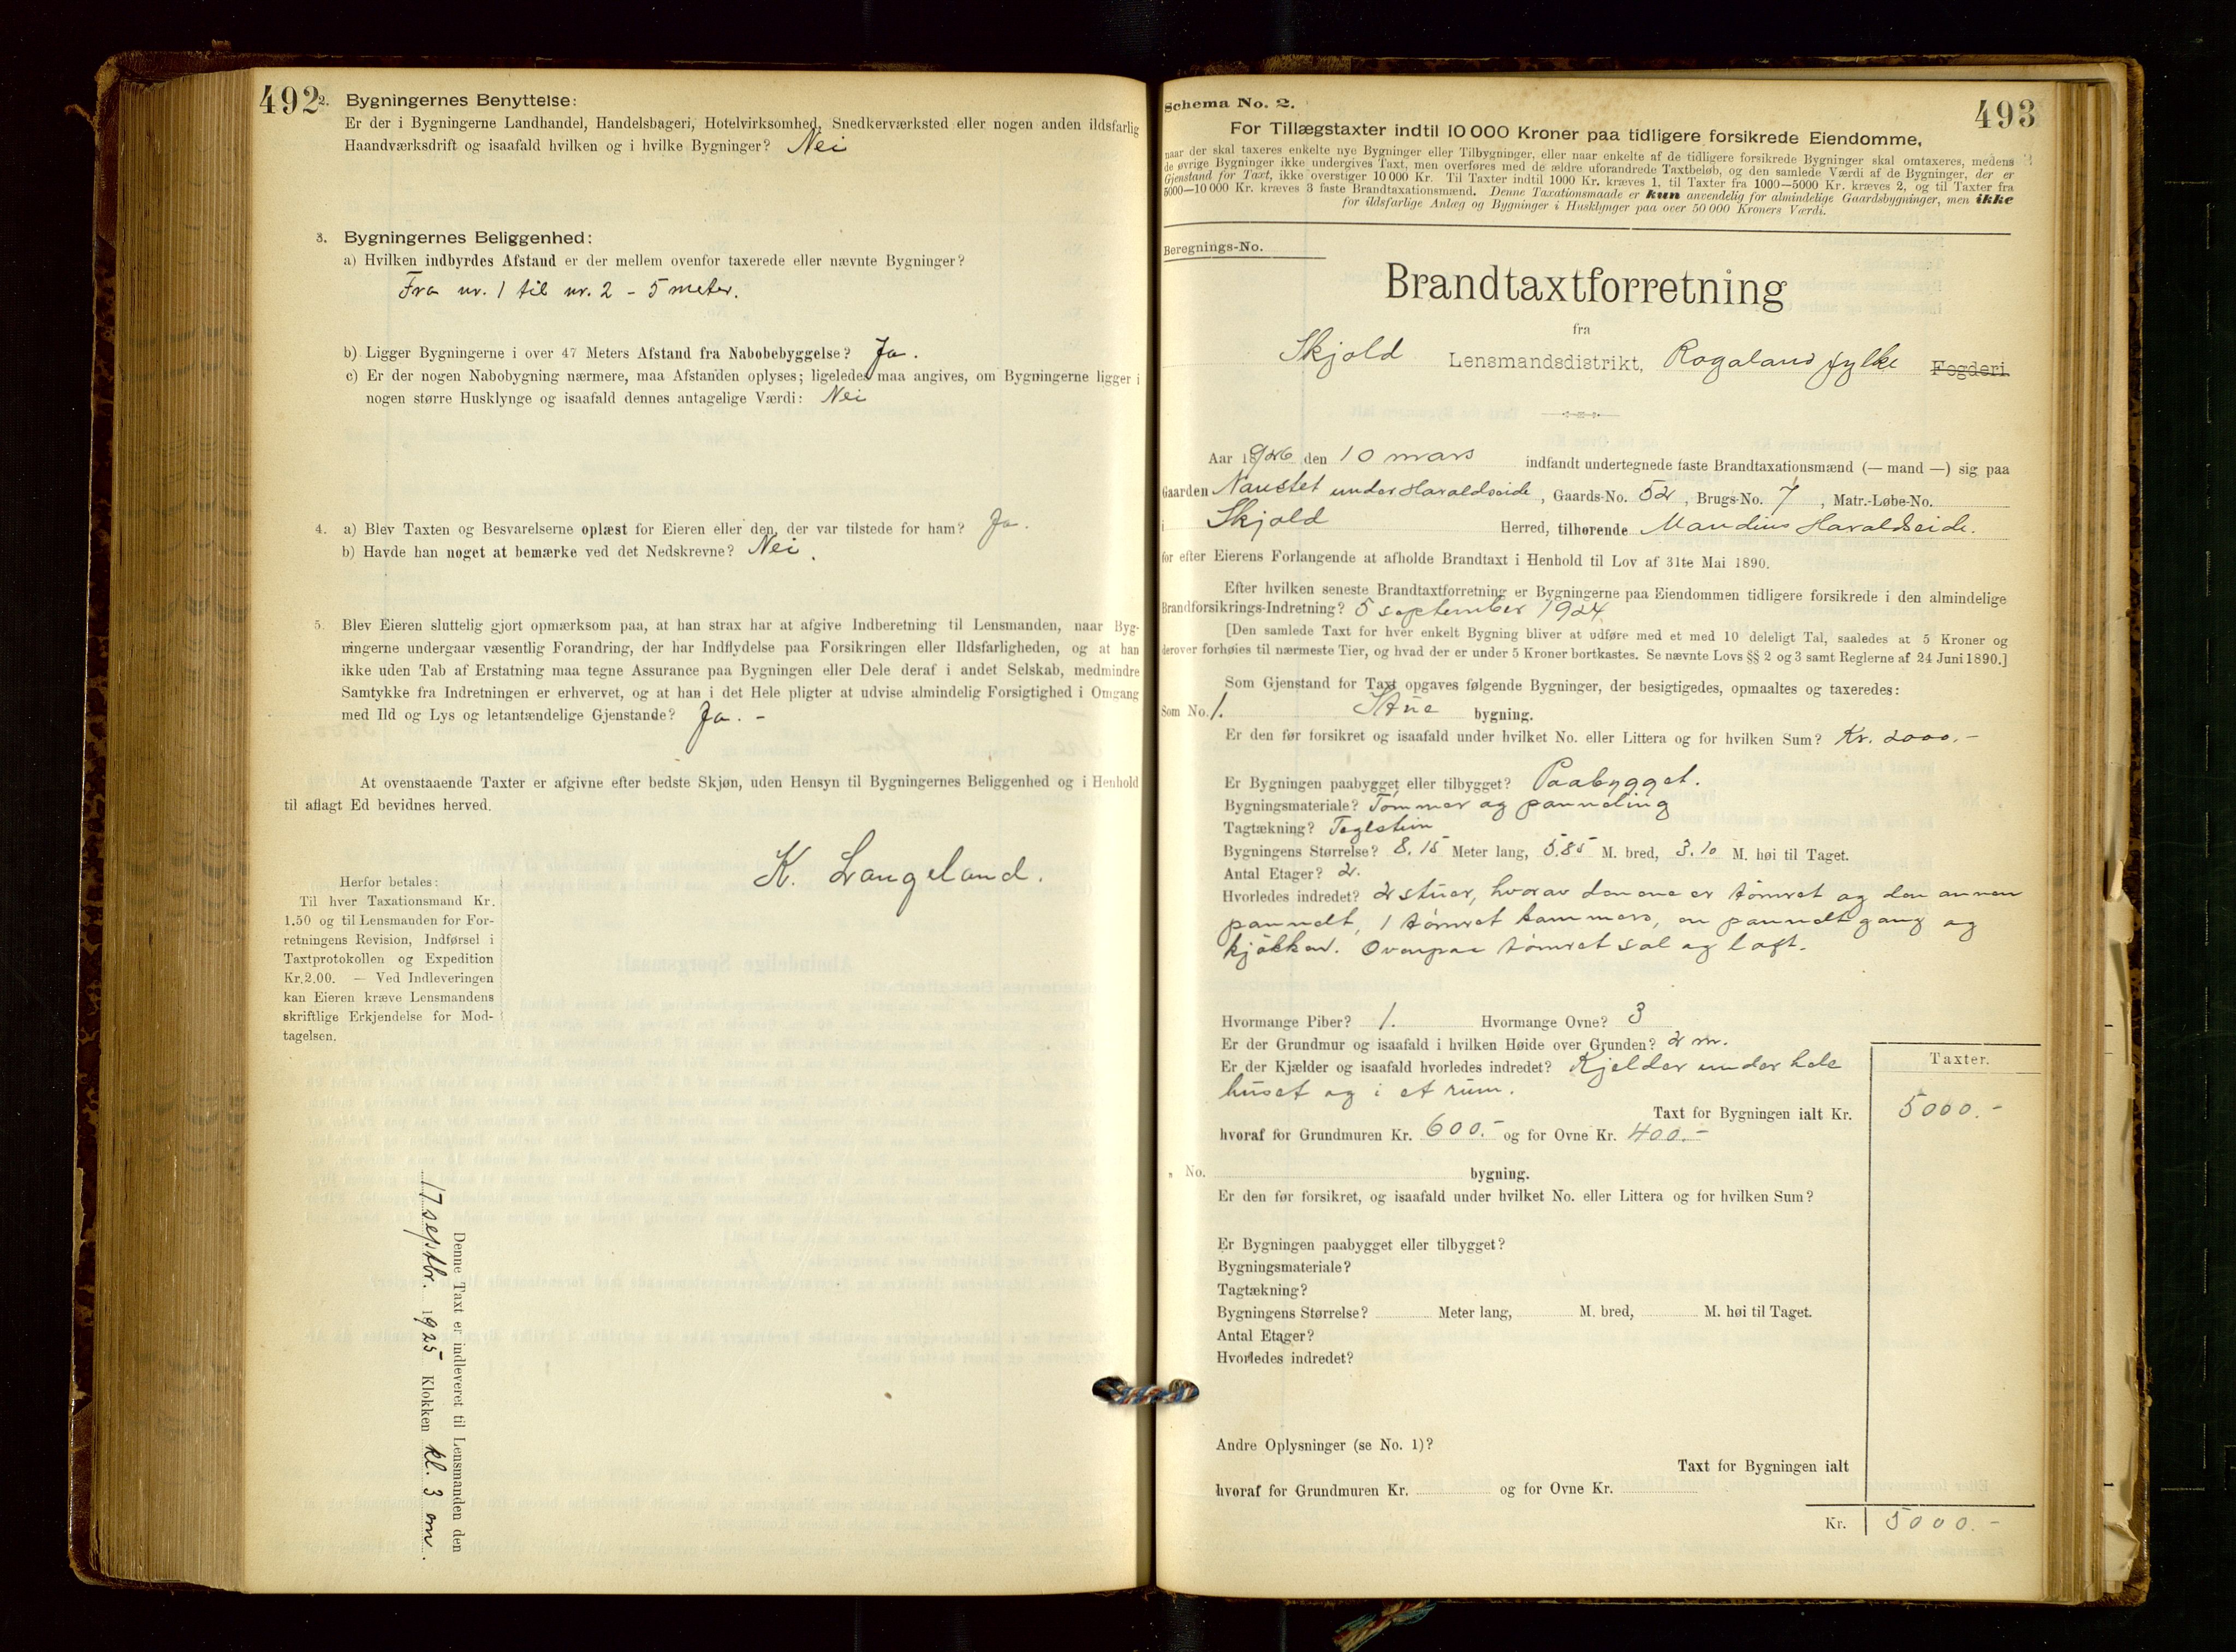 492
2. Bygningernes Benyttelse:
Er der i Bygningerne Landhandel, Handelsbageri, Hotelvirksomhed, Snedkerværksted eller nogen anden ildsfarlig
Haandværksdrift og isaafald hvilken og i hvilke Bygninger? Nei
3. Bygningernes Beliggenhed:
a) Hvilken indbyrdes Afstand er der mellem ovenfor taxerede eller nævnte Bygninger?
Fra nr. 1 til nr. 2 - 5 meter.
b) Ligger Bygningerne i over 47 Meters Afstand fra Nabobebyggelse? Ja.
c) Er der nogen Nabobygning nærmere, maa Afstanden oplyses; ligeledes maa angives, om Bygningerne ligger i
nogen større Husklynge og isaafald dennes antagelige Værdi: Nei
4. a) Blev Taxten og Besvarelserne oplæst for Eieren eller den, der var tilstede for ham? Ja.
b) Havde han noget at bemærke ved det Nedskrevne? Nei.
5. Blev Eieren sluttelig gjort opmærksom paa, at han strax har at afgive Indberetning til Lensmanden, naar Byg-
ningerne undergaar væsentlig Forandring, der har Indflydelse paa Forsikringen eller Ildsfarligheden, og at han
ikke uden Tab af Erstatning maa tegne Assurance paa Bygningen eller Dele deraf i andet Selskab, medmindre
Samtykke fra Indretningen er erhvervet, og at han i det Hele pligter at udvise almindelig Forsigtighed i Omgang
med Ild og Lys og letantændelige Gjenstande? Ja. -
At ovenstaaende Taxter er afgivne efter bedste Skjøn, uden Hensyn til Bygningernes Beliggenhed og i Henhold
til aflagt Ed bevidnes herved.
K. Langeland.
Herfor betales:
Til hver Taxationsmand Kr.
1.50 og til Lensmanden for For-
retningens Revision, Indførsel i
Taxtprotokollen og Expedition
Kr. 2.00. — Ved Indleveringen
kan Eieren kræve Lensmandens
skriftlige Erkjendelse for Mod-
tagelsen.
Denne Taxt er indleveret til Lensmanden den
17 septbr. 1925 Klokken kl. 3 em.
493
Schema No. 2.
For Tillægstaxter indtil 10 000 Kroner paa tidligere forsikrede Eiendomme,
naar der skal taxeres enkelte nye Bygninger eller Tilbygninger, eller naar enkelte af de tidligere forsikrede Bygninger skal omtaxeres, medens
de øvrige Bygninger ikke undergives Taxt, men overføres med de ældre uforandrede Taxtbeløb, og den samlede Værdi af de Bygninger, der er
Gjenstand for Taxt, ikke overstiger 10 000 Kr. Til Taxter indtil 1000 Kr. kræves 1, til Taxter fra 1000—5000 Kr. kræves 2, og til Taxter fra
5000—10 000 Kr. kræves 3 faste Brandtaxationsmænd. Denne Taxationsmaade er kun anvendelig for almindelige Gaardsbygninger, men ikke
for ildsfarlige Anlæg og Bygninger i Husklynger paa over 50 000 Kroners Værdi.
Beregnings-No.
Brandtaxtforretning
fra
Skjold Lensmandsdistrikt, Rogaland fylke Fogderi
Aar 1926 den 10 mars indfandt undertegnede faste Brandtaxationsmænd (— mand —) sig paa
Gaarden Naustet under Haraldseide, Gaards-No. 52, Brugs-No. 7, Matr.-Løbe-No.
i Skjold Herred, tilhørende Mandius Haraldseide.
for efter Eierens Forlangende at afholde Brandtaxt i Henhold til Lov af 31te Mai 1890.
Efter hvilken seneste Brandtaxtforretning er Bygningerne paa Eiendommen tidligere forsikrede i den almindelige
Brandforsikrings-Indretning? 5 september 1924.
[Den samlede Taxt for hver enkelt Bygning bliver at udføre med et med 10 deleligt Tal, saaledes at 5 Kroner og
derover forhøies til nærmeste Tier, og hvad der er under 5 Kroner bortkastes. Se nævnte Lovs §§ 2 og 3 samt Reglerne af 24 Juni 1890.]
Som Gjenstand for Taxt opgaves følgende Bygninger, der besigtigedes, opmaaltes og taxeredes:
Som No. 1. Stue bygning.
Er den før forsikret og isaafald under hvilket No. eller Littera og for hvilken Sum? Kr. 2000.-
Er Bygningen paabygget eller tilbygget? Paabygget.
Bygningsmateriale? Tømmer og panneling
Tagtækning? Teglstein
Bygningens Størrelse? 8.15 Meter lang, 5.85 M. bred, 3.10 M. høi til Taget.
Antal Etager? 2.
Hvorledes indredet? 2 stuer, hvorav den ene er tømret og den annen
pannelt, 1 tømret kammers, en pannelt gang og
kjøkken. Ovenpaa tømret sal og loft.
Hvormange Piber? 1. Hvormange Ovne? 3
Er der Grundmur og isaafald i hvilken Høide over Grunden? 2 m.
Er der Kjælder og isaafald hvorledes indredet? Kjelder under hele
huset og i et rum.
Taxter.
Taxt for Bygningen ialt Kr. 5000.-
hvoraf for Grundmuren Kr. 600.- og for Ovne Kr. 400.-
„ No. bygning.
Er den før forsikret, og isaafald under hvilket No. eller Littera og for hvilken Sum?
Er Bygningen paabygget eller tilbygget?
Bygningsmateriale?
Tagtækning?
Bygningens Størrelse? Meter lang, M. bred, M. høi til Taget.
Antal Etager?
Hvorledes indredet?
Andre Oplysninger (se No. 1)?
Taxt for Bygningen ialt
hvoraf for Grundmuren Kr. og for Ovne Kr.
Kr. 5000.-